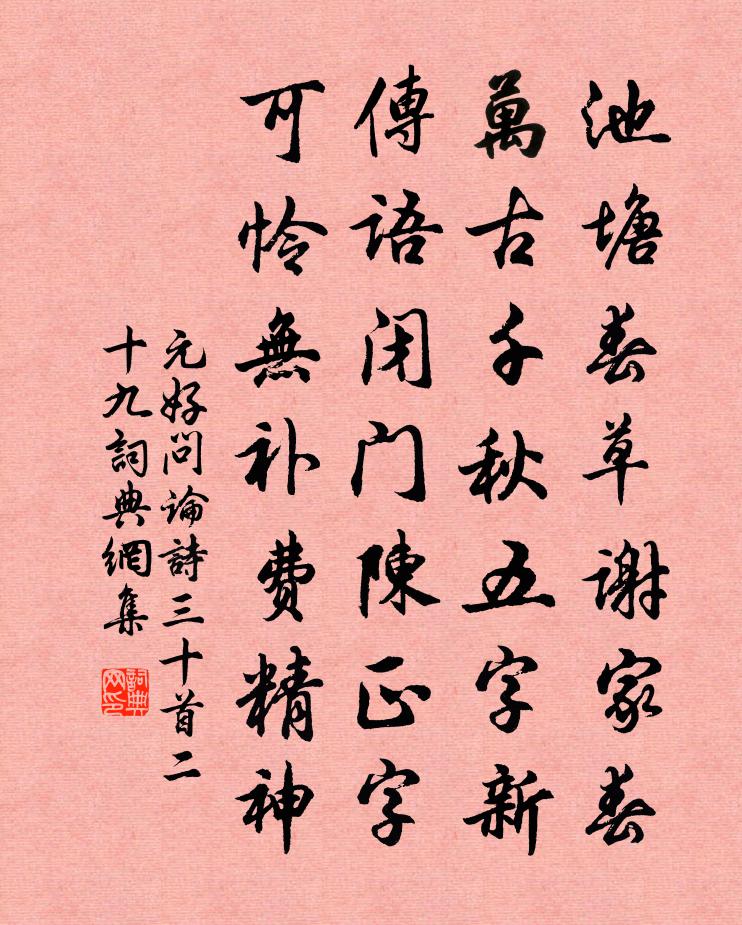 池塘春草謝家春
萬古千秋五字新
傳語闭门陳正字
可怜無补费精神
元好问論詩三十首二
十九詞典網集
詞典
网印